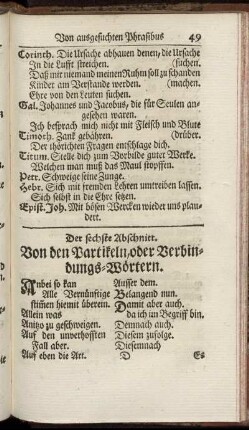 Von ausgesuchten Phrasibus 49
Corinth. Die Ursache abhauen denen, die Ursache
In die Lufft streichen. (suchen.
Daß mit niemand meinen Ruhm soll zu schanden
Kinder am Verstande werden. (machen.
Ehre von den Leuten suchen.
Gal. Johannes und Jacobus, die für Seulen an-
gesehen waren.
Ich besprach mich nicht mit Fleisch und Blute
Timoth. Zanck gebähren. (drüber.
Der thörichten Fragen entschlage dich.
Titum. Stelle dich zum Vorbilde guter Wercke.
Welchen man muß das Maul stopffen.
Petr. Schweige seine Zunge.
Hebr. Sich mit fremden Lehren umtreiben lassen.
Sich selbst in die Ehre setzen.
Epist. Joh. Mit bösen Wercken wieder uns plau-
dert.
Der sechste Abschnitt.
Von den Partikeln, oder Verbin-
dungs-Wörtern.
Anbei so kan
Alle Vernünftige
stimen hiemit überein.
Allein was
Anitzo zu geschweigen.
Auf den unverhofften
Fall aber.
Auf eben die Art.
Ausser dem.
Belangend nun.
Damit aber auch.
da ich im Begriff bin.
Demnach auch.
Diesem zufolge.
Diesemnach
D Es